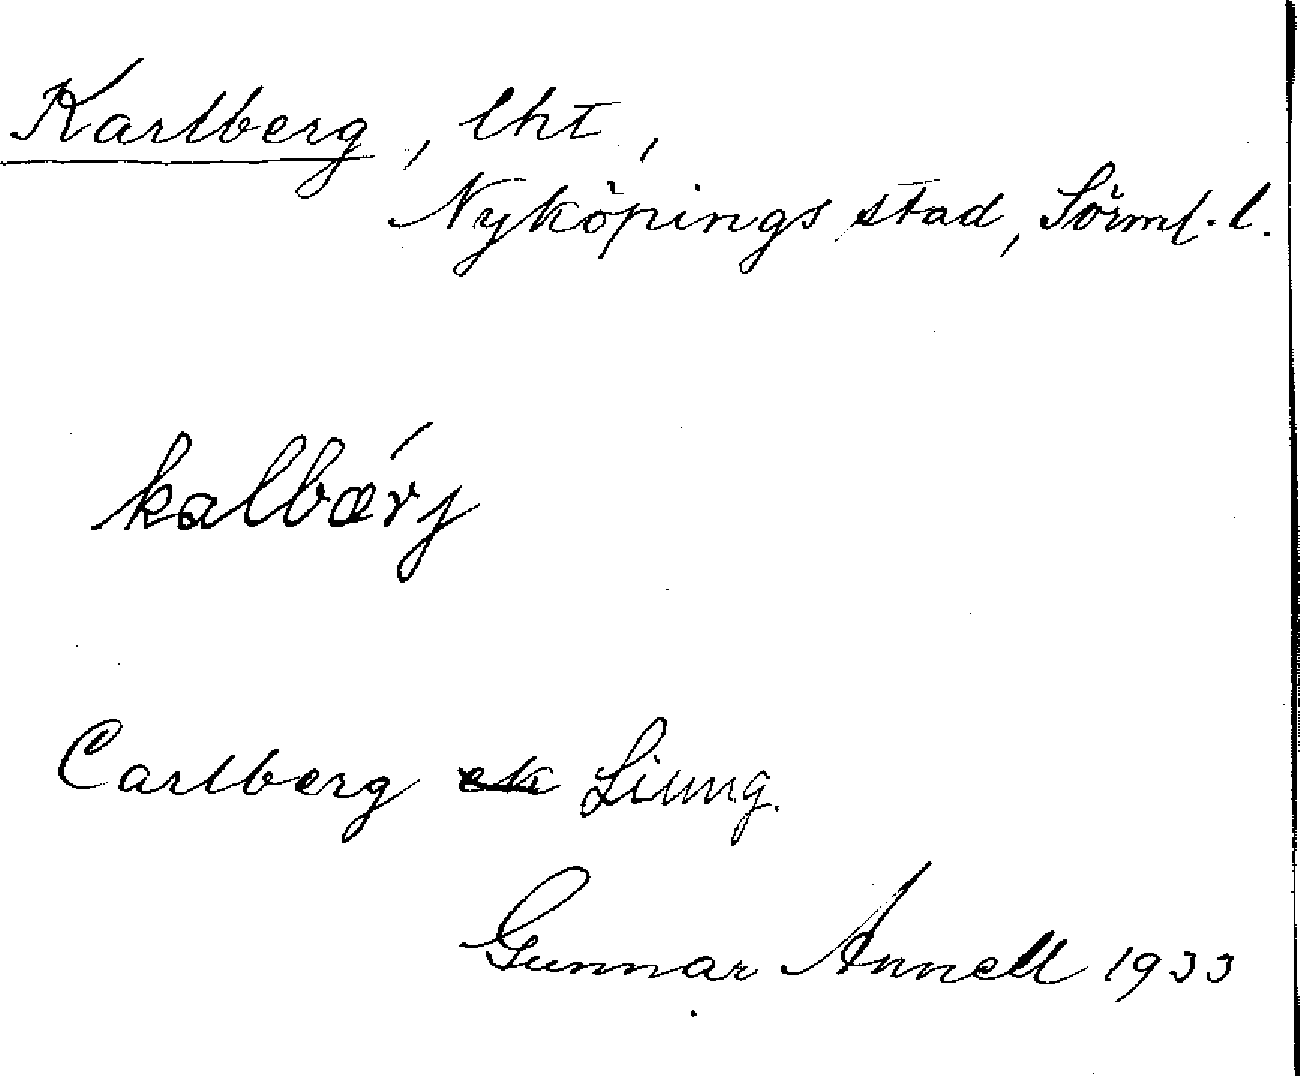 Karlberg, lht,
Nyköpings stad, Sörml. l.
kalbærj
Carlberg Liung.
Gunnar Annell 1933